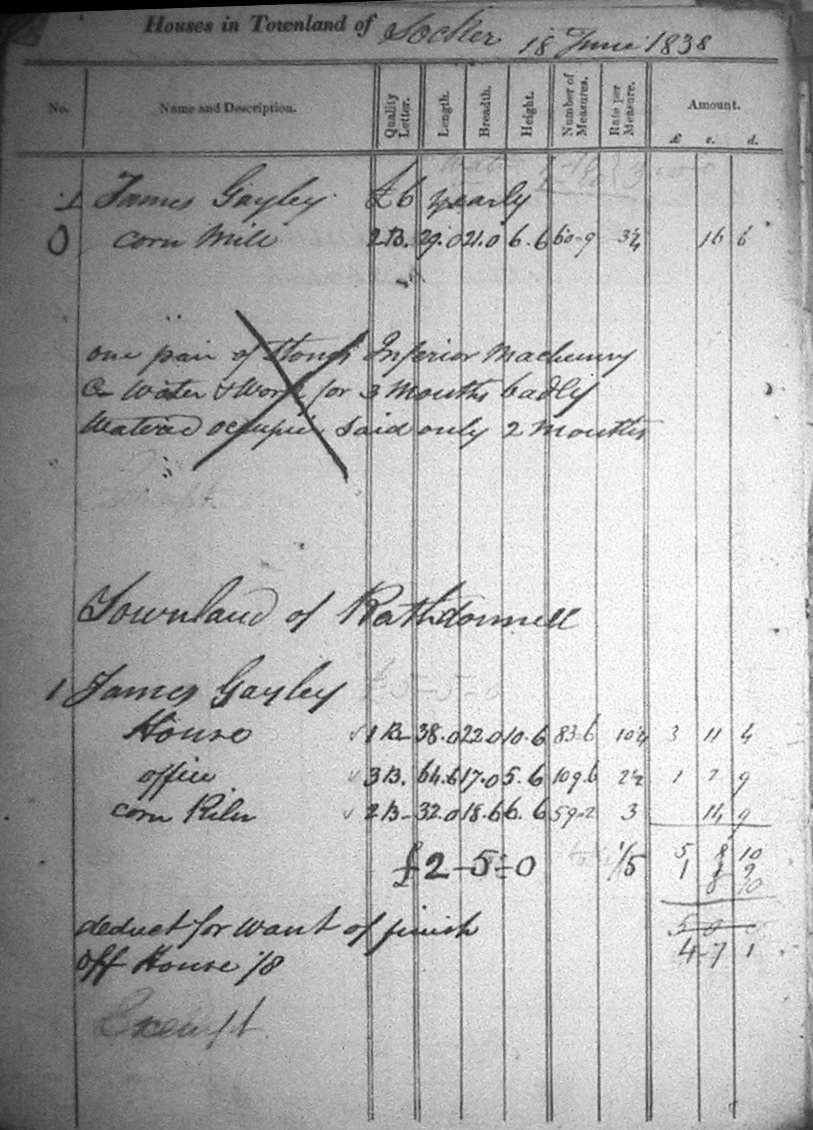 Houses in Townland of Socker 18 June 1838
No. Name and Description. Quality Letter. Length. Breadth. Height. Number of Measures. Rate per Measure. Amount. £ s. d.
1 James Gayley £6 yearly
0 corn Mill 2 B. 29.0 21.0 6.6 60-9 3¼ 16 6
one pair of Stones Inferior Machinery
Water & Work for 3 Months badly
Watered occupier said only 2 months
Townland of Rathdonnell
1 James Gayley £5-5-0
House 1 B- 38.0 22.0 10.6 83-6 10¼ 3 11 4
office 3 B. 64.6 17.0 5.6 109.6 2½ 1 2 9
corn Kiln 2 B- 32.0 18.6 6.6 59-2 3 14 9
£2-5-0 1/5 5 8 10
1 1 9
deduct for want of finish
off House 4-7 1
Exempt